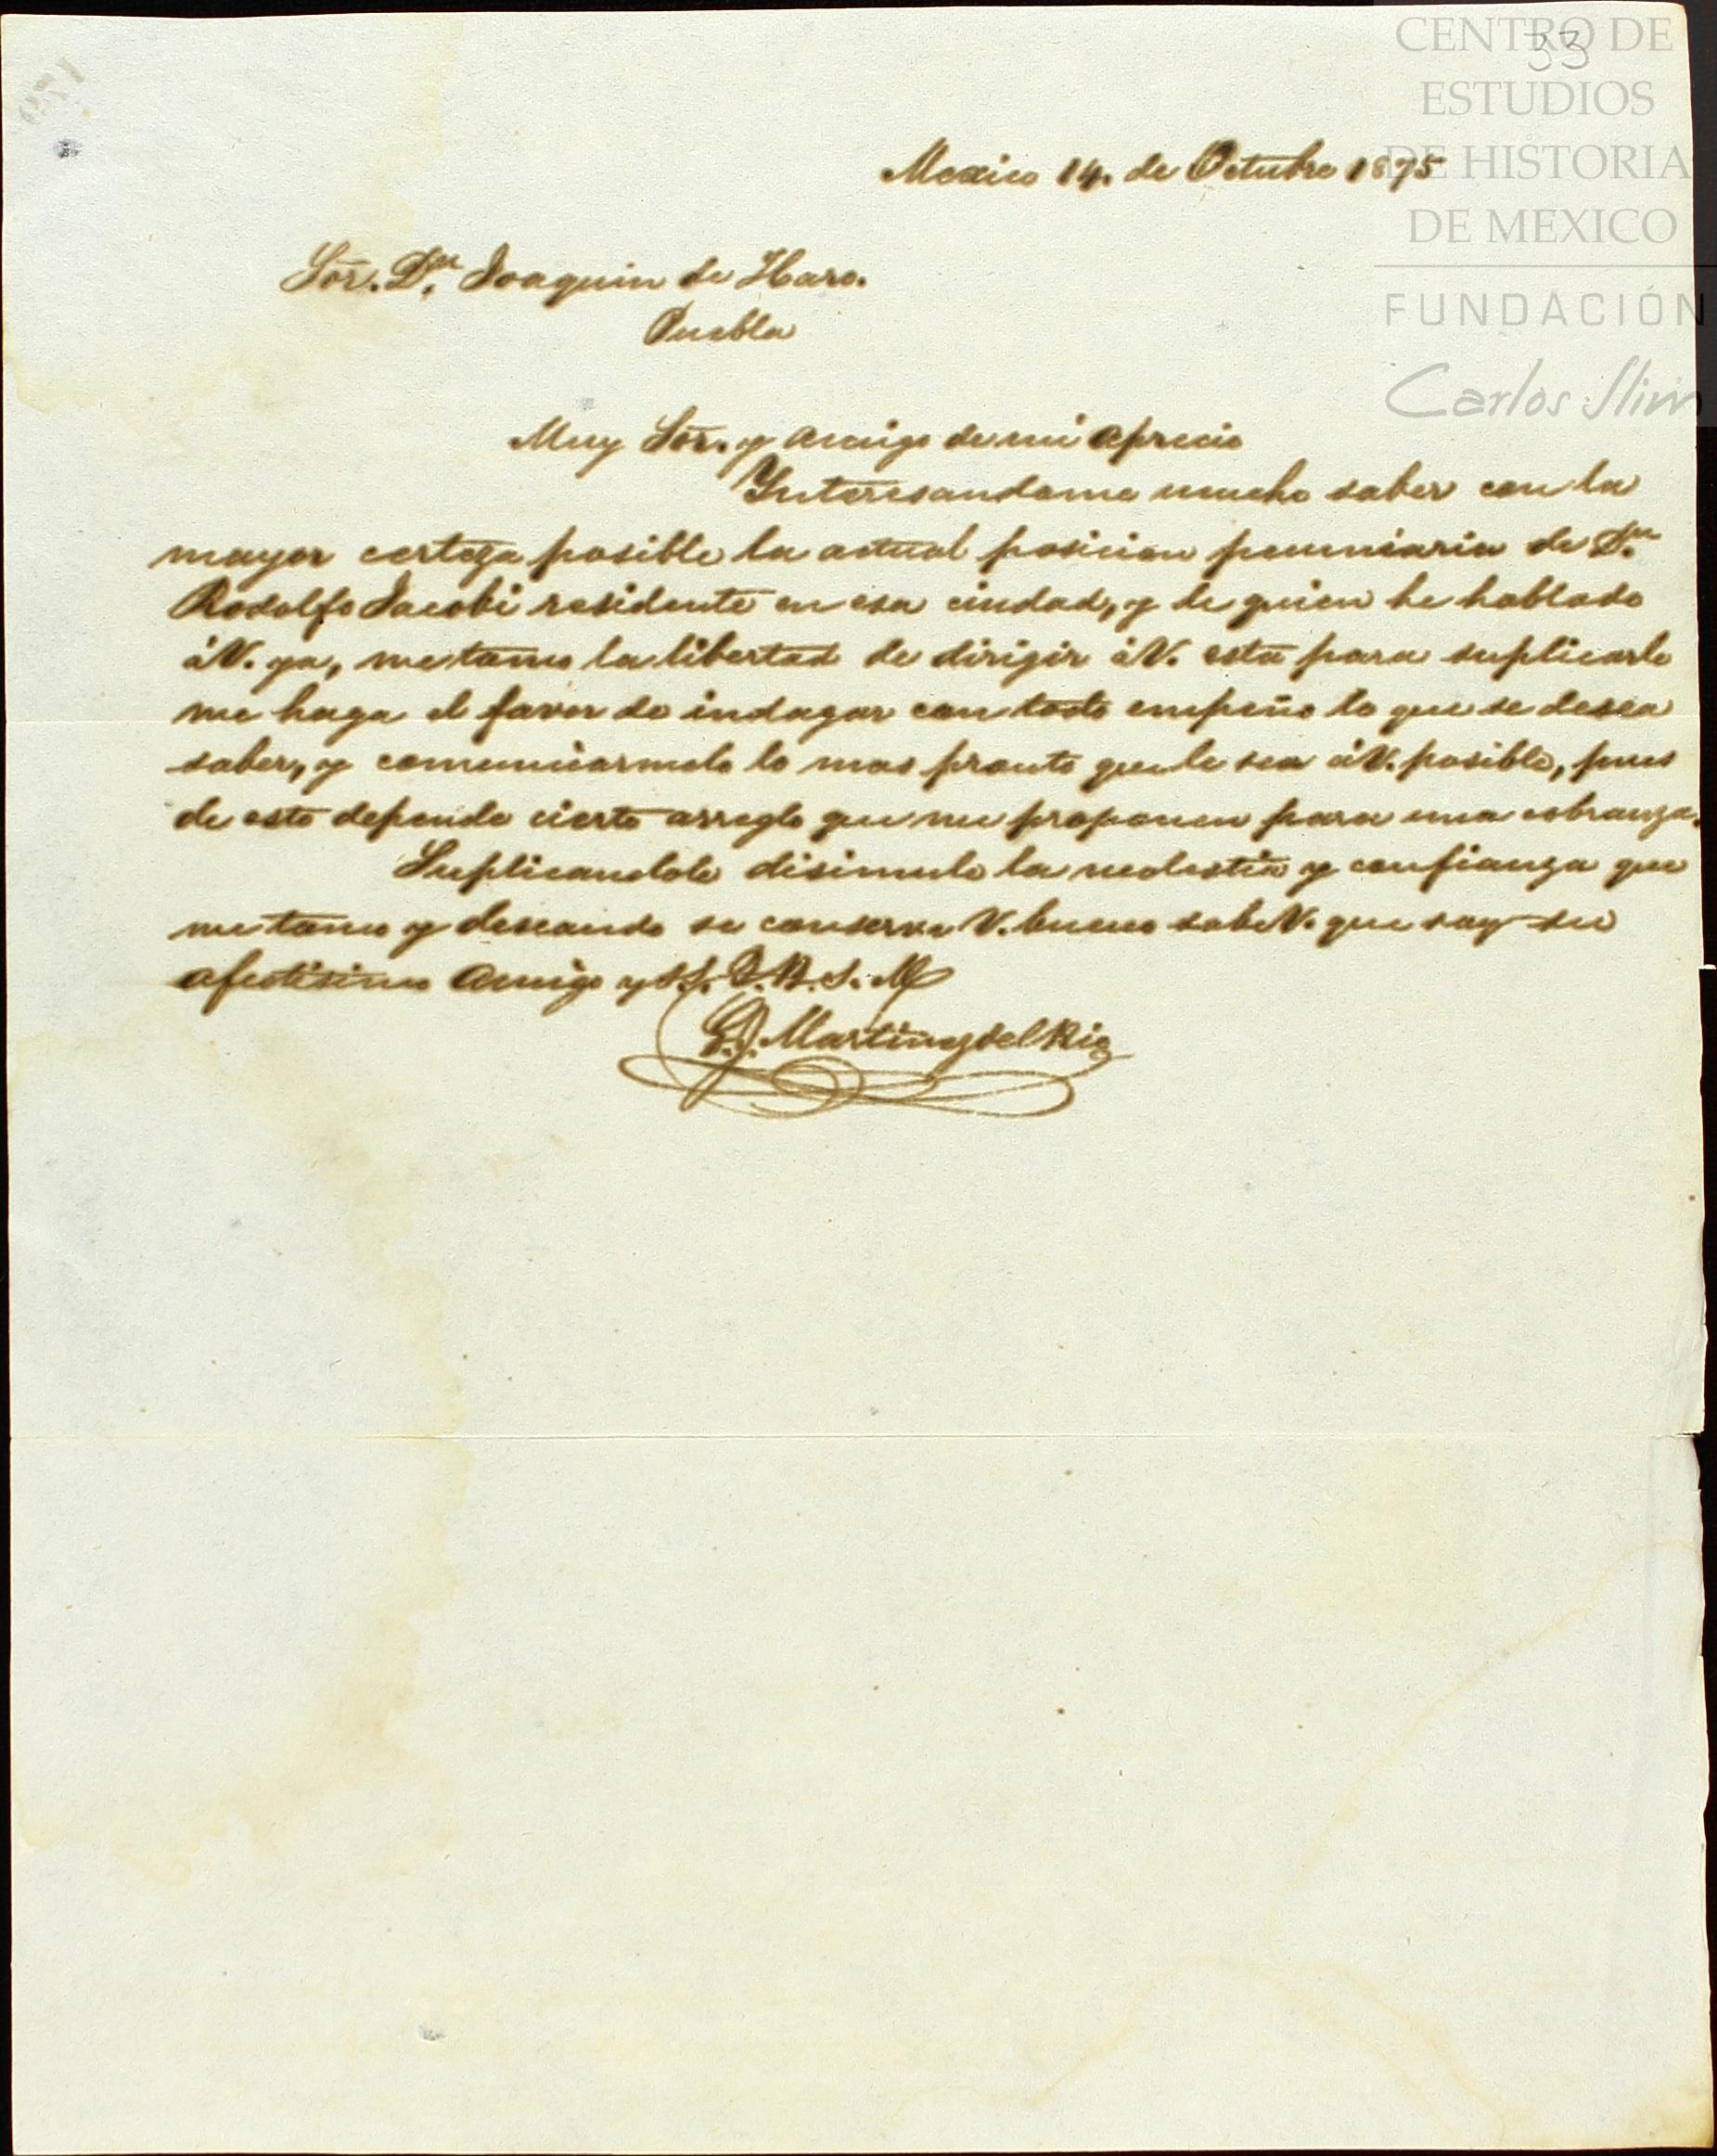 CENTRO DE
33
ESTUDIOS
DE HISTORIA
DE MEXICO
FUNDACIÓN
Carlos Slim
Mexico 14. de Octubre 1875
Sõr. Dn. Joaquin de Haro.
Puebla
Muy Sõr. y amigo de mi aprecio
Interesandome mucho saber con la
mayor certeza posible la actual posicion pecuniaria de Dn.
Rodolfo Jacobi residente en esa ciudad, y de quien he hablado
á V. ya, me tomo la libertad de dirigir á V. esta para suplicarle
me haga el favor de indagar con todo empeño lo que se desea
saber, y comunicarmelo lo mas pronto que le sea á V. posible, pues
de esto depende cierto arreglo que me proponen para una cobranza.
Suplicandole disimule la molestia y confianza que
me tomo y deseando se conserve V. bueno sabe V. que soy su
afectisimo amigo y S.S. Q. B. S. M
Martinez del Rio